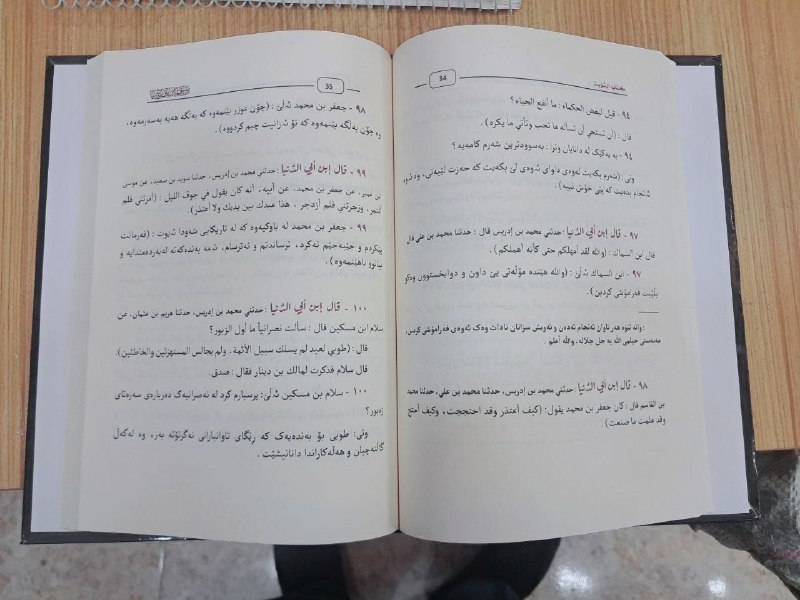 كتاب التوبة
34
٩٤ - قيل لبعض الحكماء : ما أنفع الحياء ؟
قال : (أن تستحي أن تسأله ما تحب وتأتي ما يكره) .
٩٤ - بە یەکێک لە دانایان وترا: بەسوودترین شەرم کامەیە ؟
وتی : (شەرم بکەیت لەوەی داوای ئەوەی لێ بکەیت کە حەزت لێیەتی، وە
ئەنجام بدەیت کە پێی خۆش نییە) .
٩٧ - قال ابن أبي الدنيا : حدثني محمد بن إدريس قال : حدثنا محمد بن علي قال
قال ابن السماك : (والله لقد أمهلكم حتى كأنه أهملكم) .
٩٧ - ابن السماك ئەڵێ : (والله هێندە مۆڵەتی پێ داون و دوایخستوون وەکو
بڵێیت فەرامۆشی کردبن) .
: واتە ئێوە هەر تاوان ئەنجام ئەدەن و ئەویش سزاتان نادات وەک ئەوەی فەرامۆشی کردبن،
مەبەستی حیلمی الله یە جل جلاله، والله أعلم .
٩٨ - قال ابن أبي الدنيا : حدثني محمد بن إدريس، حدثنا محمد بن علي، حدثنا محمد
بن القاسم قال : كان جعفر بن محمد يقول : (كيف أعتذر وقد احتججت، وكيف أحتج
وقد علمت ما صنعت) .
35
٩٨ - جعفر بن محمد ئەڵێ : (چۆن عوزر بێنمەوە کە بەڵگە هەیە بەسەرمەوە،
وە چۆن بەڵگە بێنمەوە کە تۆ ئەزانیت چیم کردووە) .
٩٩ - قال ابن أبي الدنيا : حدثني محمد بن إدريس، حدثنا سويد بن سعيد، عن موسى
بن عمير، عن جعفر بن محمد، عن أبيه، أنه كان يقول في جوف الليل : (أمرتني فلم
أئتمر، وزجرتني فلم أزدجر ، هذا عبدك بين يديك ولا أعتذر) .
٩٩ - جعفر بن محمد لە باوکیەوە کە لە تاریکایی شەودا ئەیوت : (فەرمانت
پێکردم و جێبەجێم نەکرد، ترساندتم و نەترسام، ئەمە بەندەکەتە لەبەردەمتدایە و
بیانوو ناهێنمەوە) .
١٠٠ - قال ابن أبي الدنيا : حدثني محمد بن إدريس، حدثنا هريم بن عثمان، عن
سلام ابن مسكين قال : سألت نصرانياً ما أول الزبور؟
قال : (طوبى لعبد لم يسلك سبيل الأثمة، ولم يجالس المستهزئين والخاطئين).
قال سلام فذكرت لمالك بن دينار فقال : صدق.
١٠٠ - سلام بن مسكين ئەڵێ: پرسیارم کرد لە نەصرانیەک دەربارەی سەرەتای
زەبور؟
وتی: طوبى بۆ بەندەیەک کە ڕێگای تاوانبارانی نەگرتۆتە بەر، وە لەگەڵ
گاڵتەچیان و هەڵەکاراندا دانانیشێت .